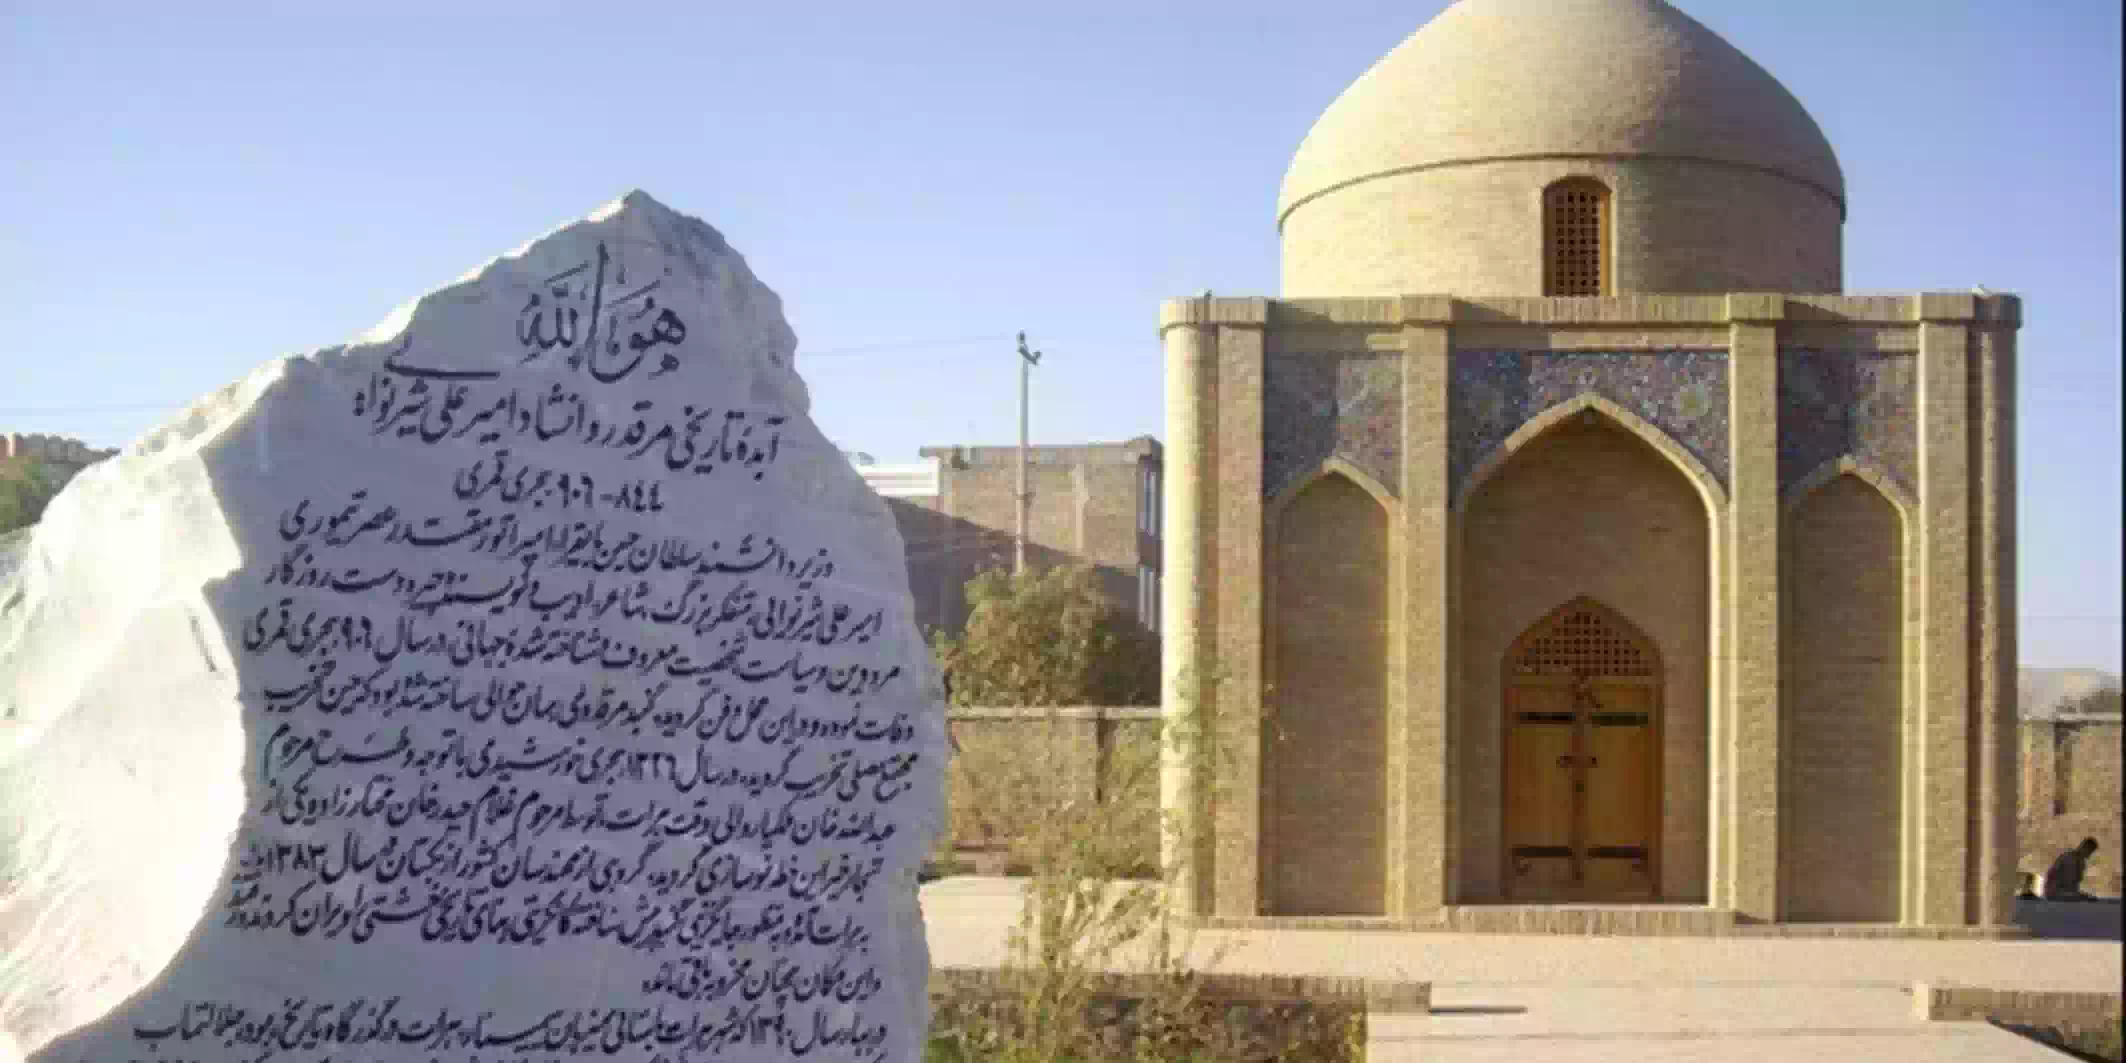 هُوَ اللّه
آبدهٔ تاریخی مرقد روانشاد امیر علی شیر نوایی
۸۴۴-۹۰۶ هجری قمری
وزیر دانشمند سلطان حسین بایقرا، امپراتور مقتدر عصر تیموری
امیر علی شیر نوائی، متفکر بزرگ، شاعر، ادیب و نویسندهٔ چیره دست روزگار
مرد دین و سیاست، شخصیت معروف و شناخته شدهٔ جهانی، در سال ۹۰۶ هجری قمری
وفات نموده و در این محل دفن گردید. گنبد مرقد وی همان حوالی ساخته شده بود که حین تخریب
مجتمع مصلی تخریب گردید. در سال ۱۳۲۶ هجری خورشیدی با توجه و مرحوم
عبدالله خان ملکیار والی وقت هرات، توسط مرحوم غلام حیدر خان مختارزاده یکی از
تجار خیر این خطه نوسازی گردید. گروهی از مهندسان کشور ازبکستان در سال ۱۳۸۳
به هرات آمده و بمنظور جایگزینی گنبد پیش ساخته کانکریتی بنای تاریخی خشتی را ویران کردند
و این مکان همچنان مخروبه باقی ماند.
در بهار سال ۱۳۹۰ که شهر هرات باستانی میزبان هرات در گذرگاه تاریخ بود،